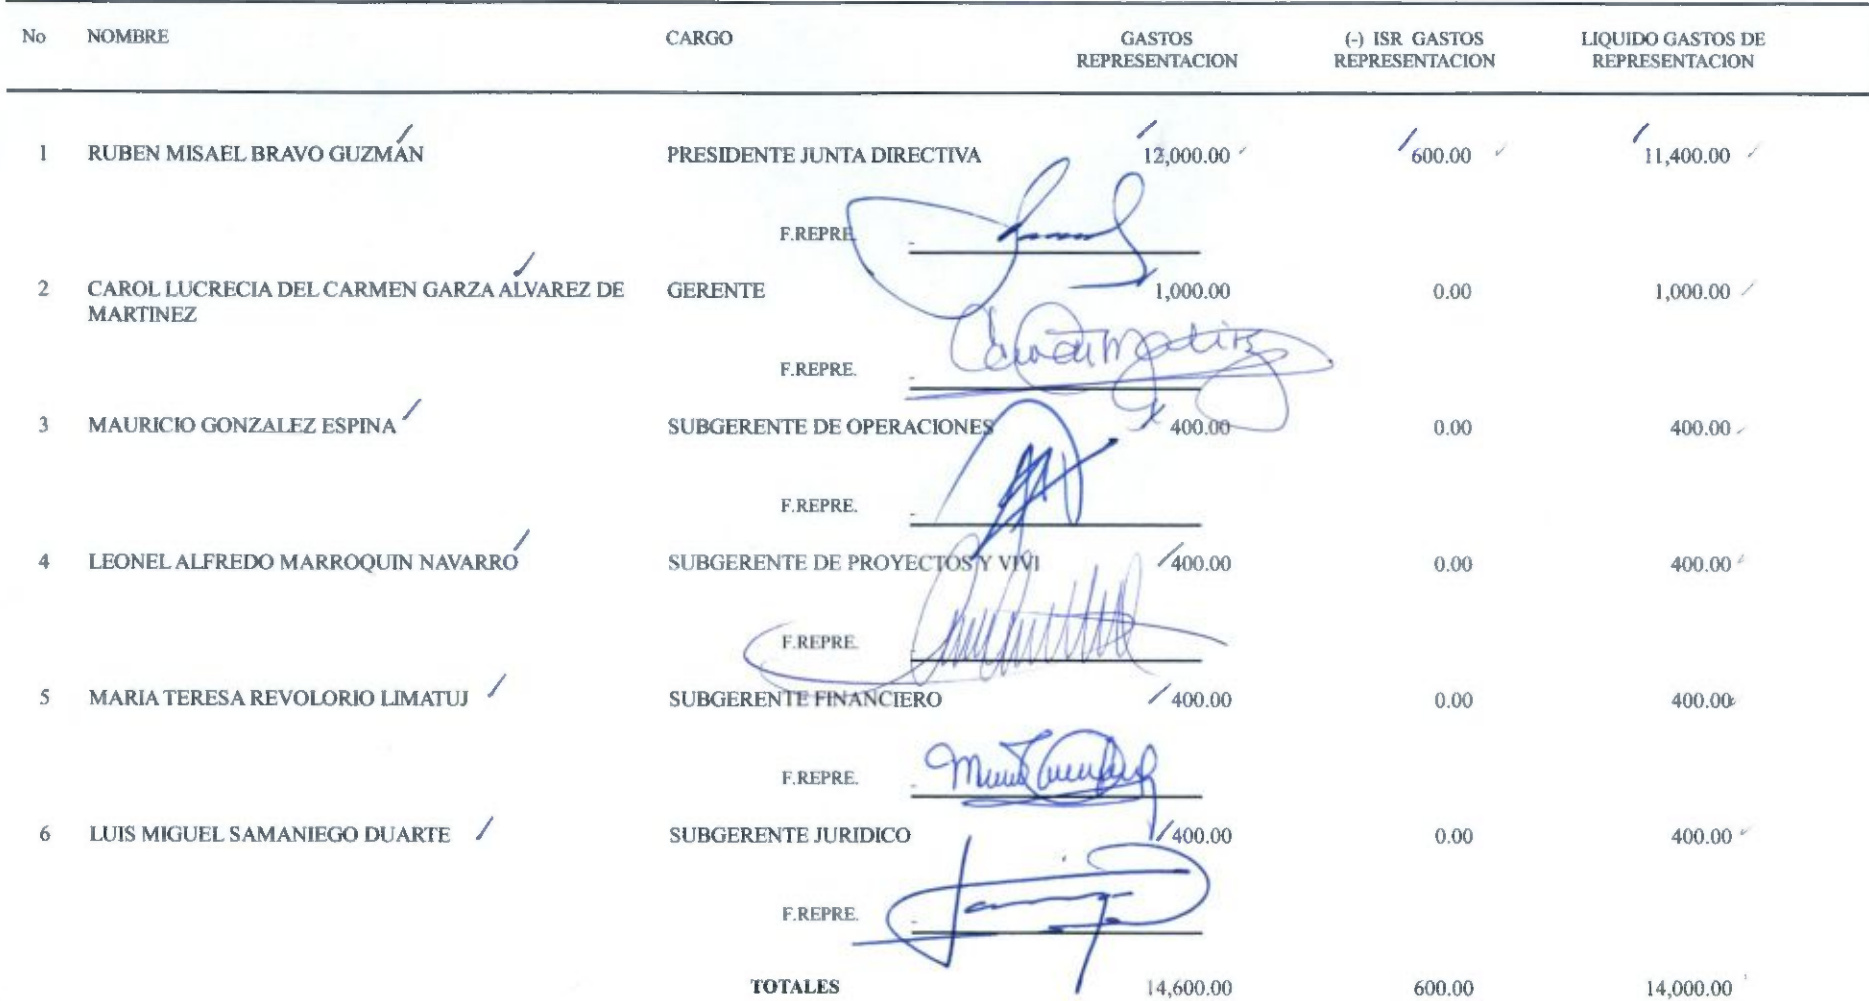 No NOMBRE CARGO GASTOS REPRESENTACION (-) ISR GASTOS REPRESENTACION LIQUIDO GASTOS DE REPRESENTACION
1 RUBEN MISAEL BRAVO GUZMÁN PRESIDENTE JUNTA DIRECTIVA 12,000.00 600.00 11,400.00
F.REPRE.
2 CAROL LUCRECIA DEL CARMEN GARZA ALVAREZ DE GERENTE 1,000.00 0.00 1,000.00
MARTINEZ
F.REPRE.
3 MAURICIO GONZALEZ ESPINA SUBGERENTE DE OPERACIONES 400.00 0.00 400.00
F.REPRE.
4 LEONEL ALFREDO MARROQUIN NAVARRO SUBGERENTE DE PROYECTOS Y VIVI 400.00 0.00 400.00
F.REPRE.
5 MARIA TERESA REVOLORIO LIMATUJ SUBGERENTE FINANCIERO 400.00 0.00 400.00
F.REPRE.
6 LUIS MIGUEL SAMANIEGO DUARTE SUBGERENTE JURIDICO 400.00 0.00 400.00
F.REPRE.
TOTALES 14,600.00 600.00 14,000.00